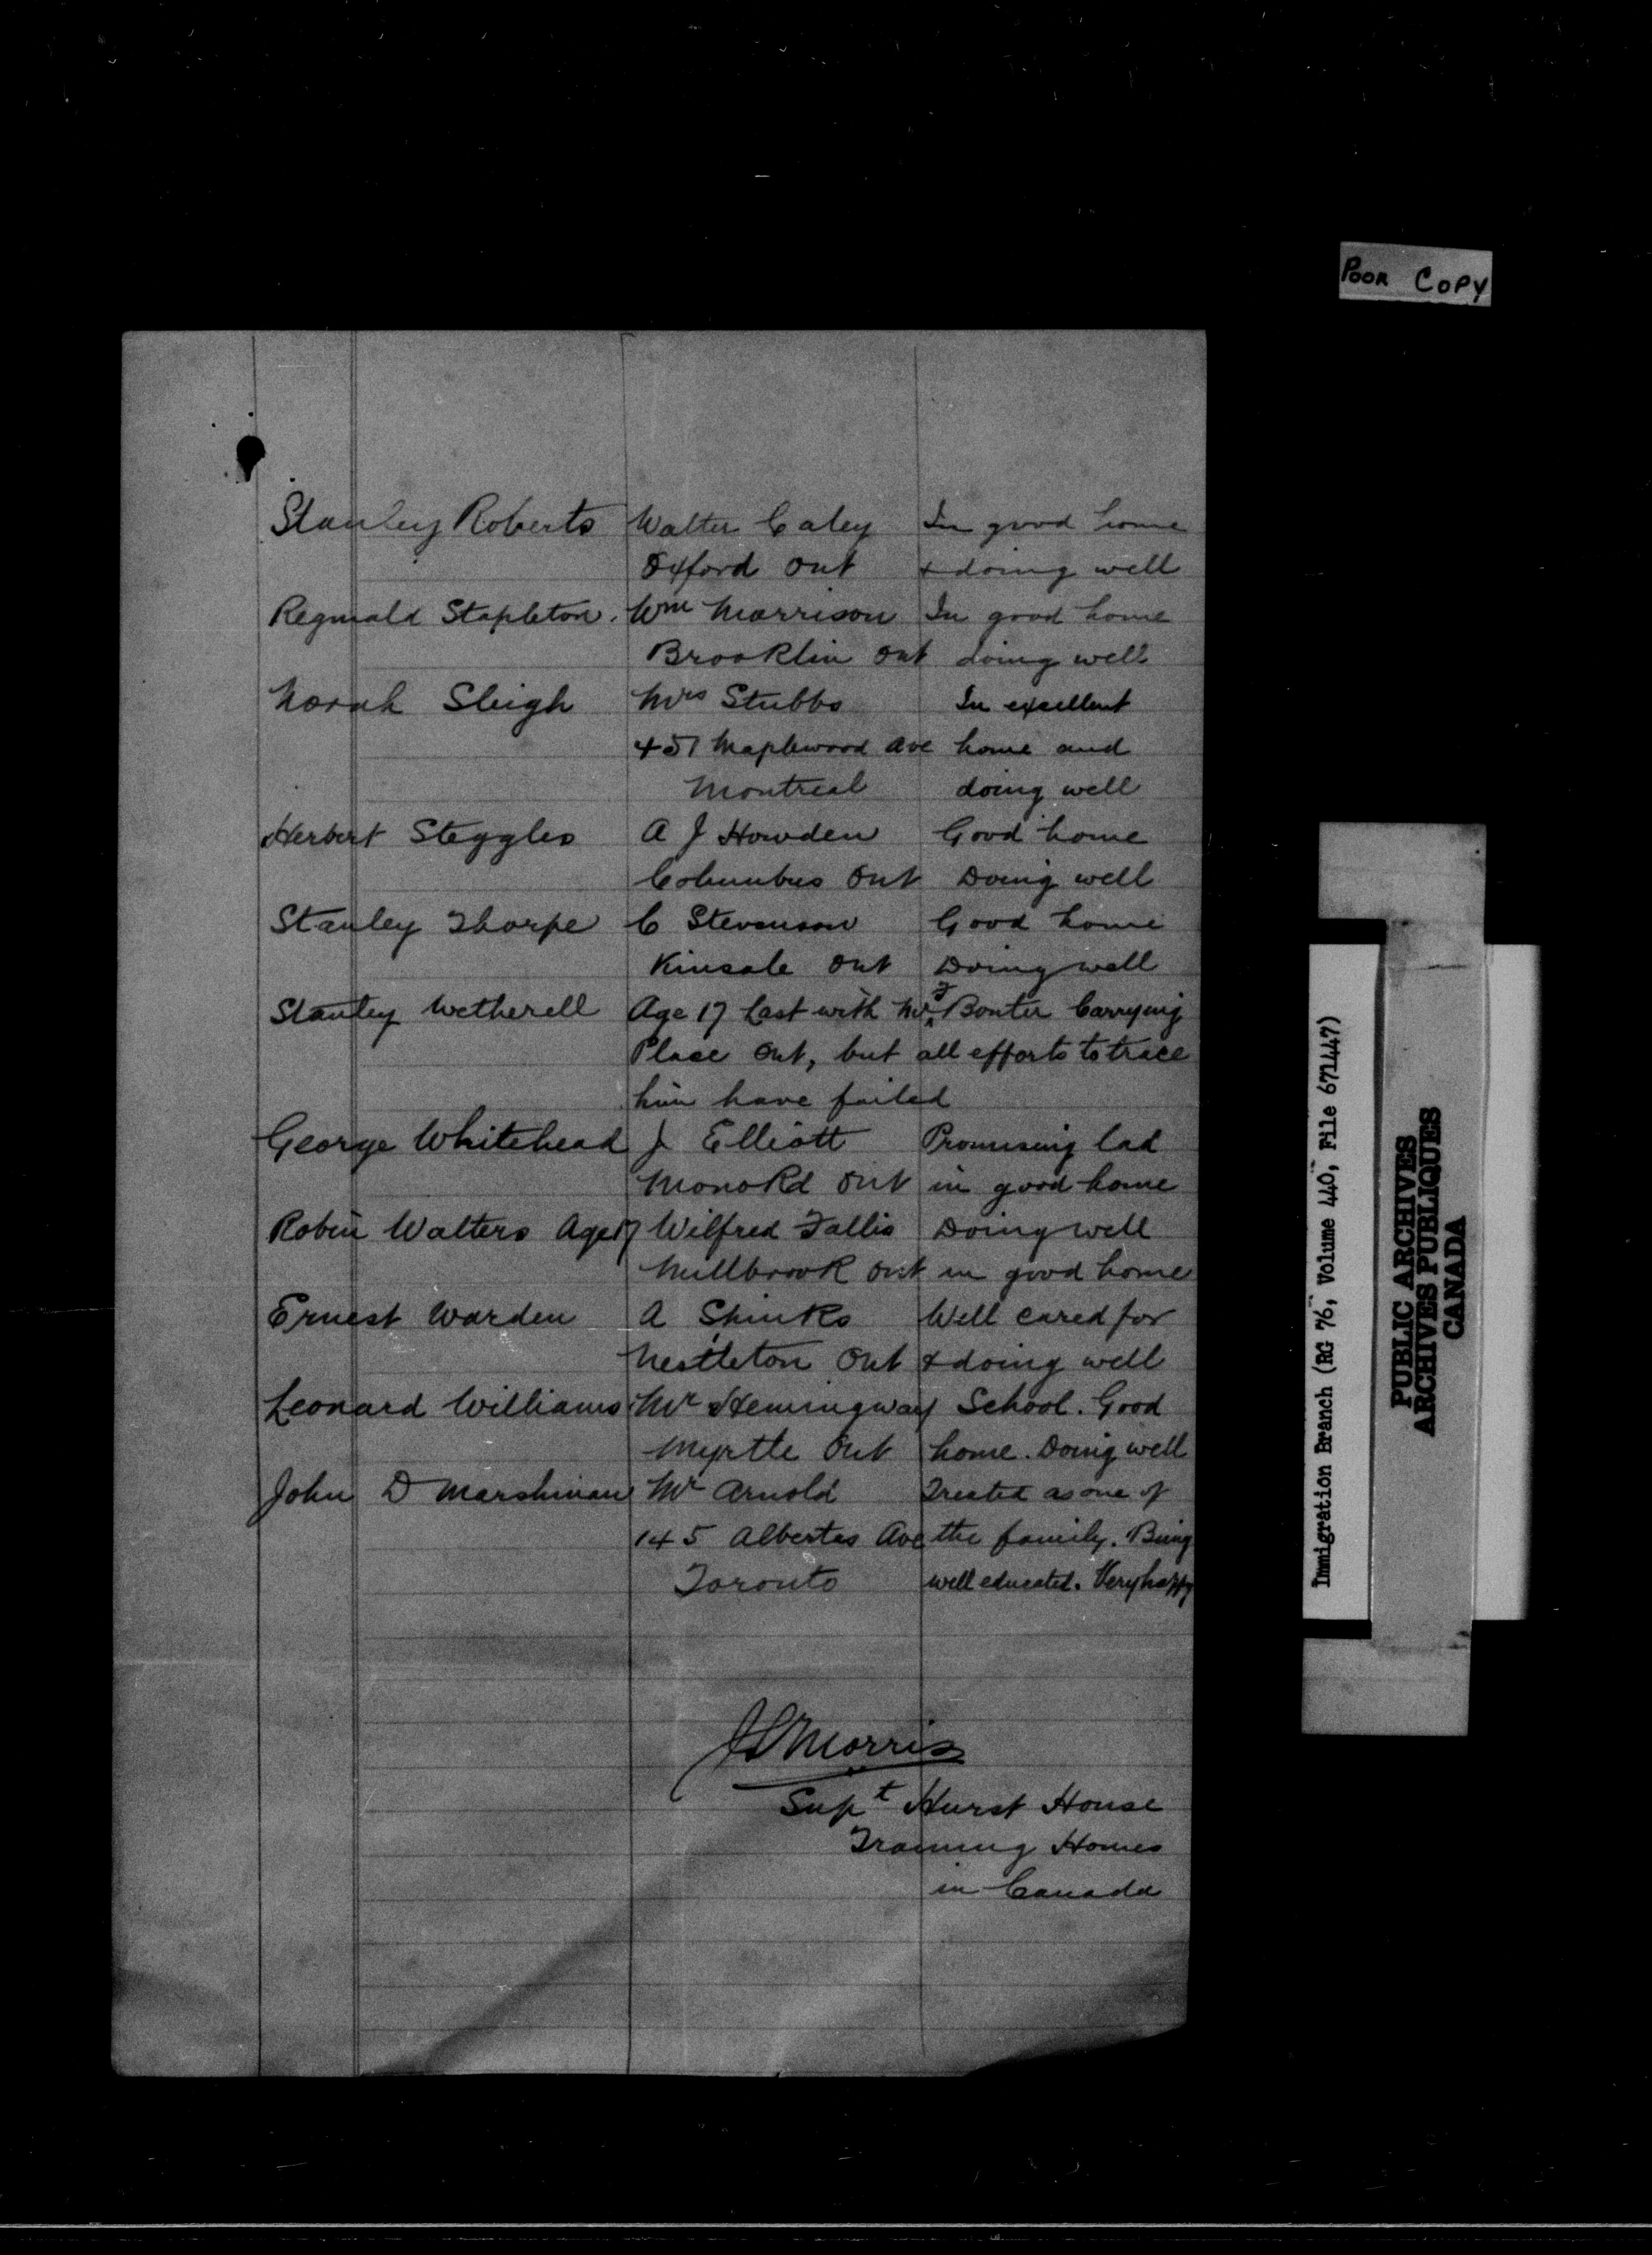 POOR COPY
Stanley Roberts Walter Caley In good home
Oxford Ont & doing well
Reginald Stapleton. Wm Morrison In good home
Brooklin Ont doing well
Norah Sleigh Mrs Stubbs In excellent
451 Maplewood Ave home and
Montreal doing well
Herbert Steggles A J Howden Good home
Columbus Ont Doing well
Stanley Thorpe C Stevenson Good home
Kinsale Ont Doing well
Stanley Wetherell Age 17 Last with Mr F Bonter Carrying
Place Ont, but all efforts to trace
him have failed
George Whitehead J Elliott Promising lad
Mono Rd Ont in good home
Robin Walters Age 17 Wilfred Fallis Doing well
Millbrook Ont in good home
Ernest Warden A Spinks Well cared for
Nestleton Ont & doing well
Leonard Williams Mr Hemingway School. Good
Myrtle Ont home. Doing well
John D Marshman Mr Arnold Treated as one of
145 Albertas Ave the family. Being
Toronto well educated. Very happy
Morris
Supt Hurst House
Training Homes
in Canada
Immigration Branch (RG 76, Volume 440, File 671447)
PUBLIC ARCHIVES
ARCHIVES PUBLIQUES
CANADA